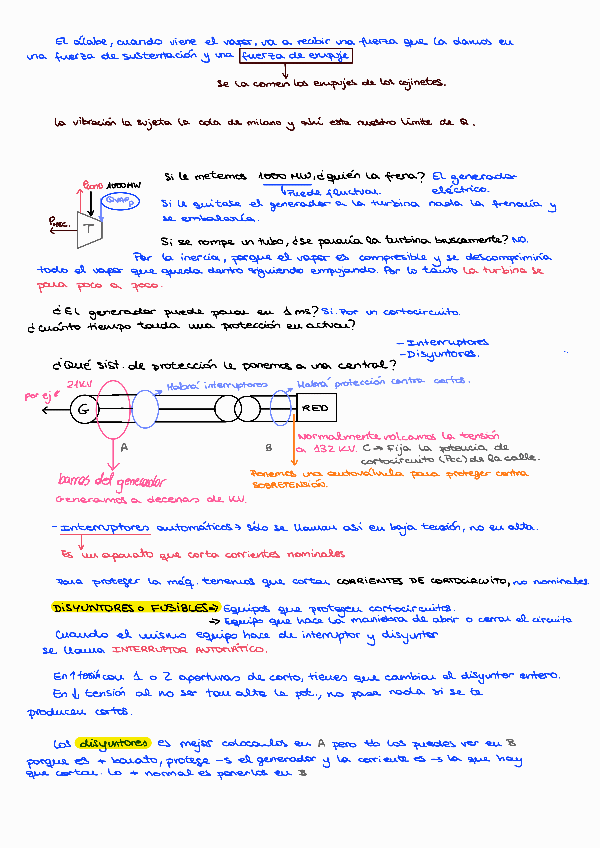 El álabe, cuando viene el vapor, va a recibir una fuerza que la damos en
una fuerza de sustentación y una fuerza de empuje
Se la comen los empujes de los cojinetes.
La vibración la sujeta la cola de milano y ahí esta nuestro límite de Q.
Si le metemos 1000 MW, ¿quién la frena? El generador
eléctrico.
Puede fluctuar.
1000 MW
Qvap
PMEC.
T
Si le quitase el generador a la turbina nada la frenaría y
se embalaría.
Si se rompe un tubo, ¿se pararía la turbina bruscamente? NO.
Por la inercia, porque el vapor es compresible y se descomprimiría
todo el vapor que queda dentro siguiendo empujando. Por lo tanto la turbina se
para poco a poco.
¿El generador puede parar en 1 ms? Sí. Por un cortocircuito.
¿Cuánto tiempo tarda una protección en actuar?
- Interruptores
- Disyuntores.
¿Qué sist. de protección le ponemos a una central?
por ej
21KV
Habrá interruptores
Habrá protección contra cortos.
G
RED
A
B
Normalmente volcamos la tensión
a 132 KV. C → Fija la potencia de
cortocircuito (Pcc) de la calle.
barras del generador
Generamos a decenas de KV.
Ponemos una autoválvula para proteger contra
SOBRETENSIÓN.
- Interruptores automáticos → sólo se llaman así en baja tensión, no en alta.
Es un aparato que corta corrientes nominales
Para proteger la máq. tenemos que cortar CORRIENTES DE CORTOCIRCUITO, no nominales
DISYUNTORES o FUSIBLES → Equipos que protegen cortocircuitos.
→ Equipo que hace la maniobra de abrir o cerrar el circuito
Cuando el mismo equipo hace de interruptor y disyuntor
se llama INTERRUPTOR AUTOMÁTICO.
En ↑ tensión con 1 o 2 aperturas de corto, tienes que cambiar el disyuntor entero.
En ↓ tensión al no ser tan alta la pot., no pasa nada si se te
producen cortos.
Los disyuntores es mejor colocarlos en A pero tb los puedes ver en B
porque es + barato, protege -s el generador y la corriente es -s la que hay
que cortar. Lo + normal es ponerlos en B